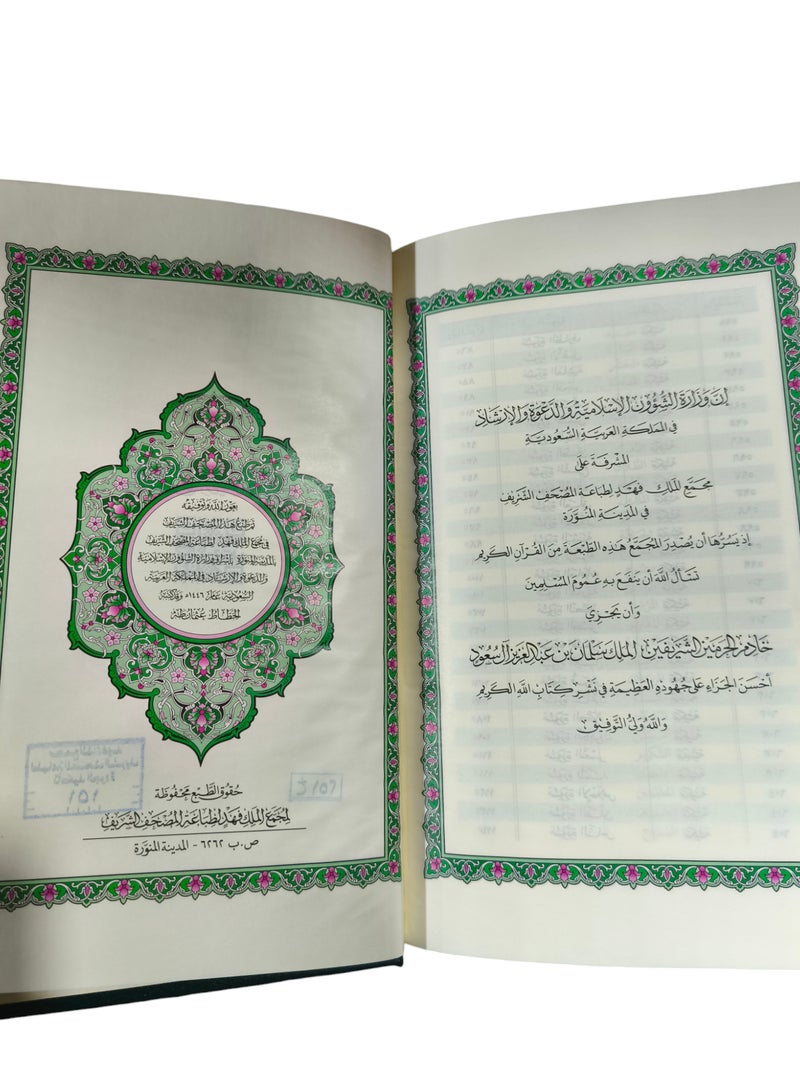 إن وزارة الشؤون الإسلامية والدعوة والإرشاد
في المملكة العربية السعودية
المشرفة على
مجمع الملك فهد لطباعة المصحف الشريف
في المدينة المنورة
إذ يسرها أن يصدر المجمع هذه الطبعة من القرآن الكريم
تسأل الله أن ينفع به عموم المسلمين
وأن يجزي
خادم الحرمين الشريفين الملك سلمان بن عبد العزيز آل سعود
أحسن الجزاء على جهوده العظيمة في نشر كتاب الله الكريم
والله ولي التوفيق
بعون الله وتوفيقه
تم طبع هذا المصحف الشريف
في مجمع الملك فهد لطباعة المصحف الشريف
بالمدينة المنورة بإشراف وزارة الشؤون الإسلامية
والدعوة والإرشاد في المملكة العربية
السعودية عام ١٤٤٦هـ وكتبه
الخطاط عثمان طه
حقوق الطبع محفوظة
لمجمع الملك فهد لطباعة المصحف الشريف
ص.ب ٦٢٦٢ - المدينة المنورة